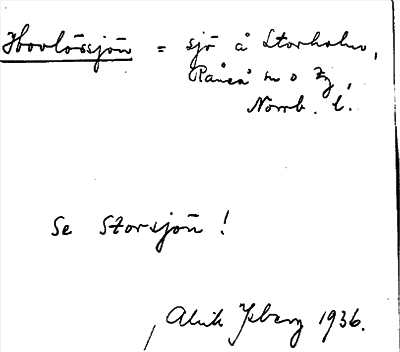 Hovlössjön = sjö å Storholm,
Råneå
Norrb. l.
Se Storsjön!
Alrik Ysberg 1936.